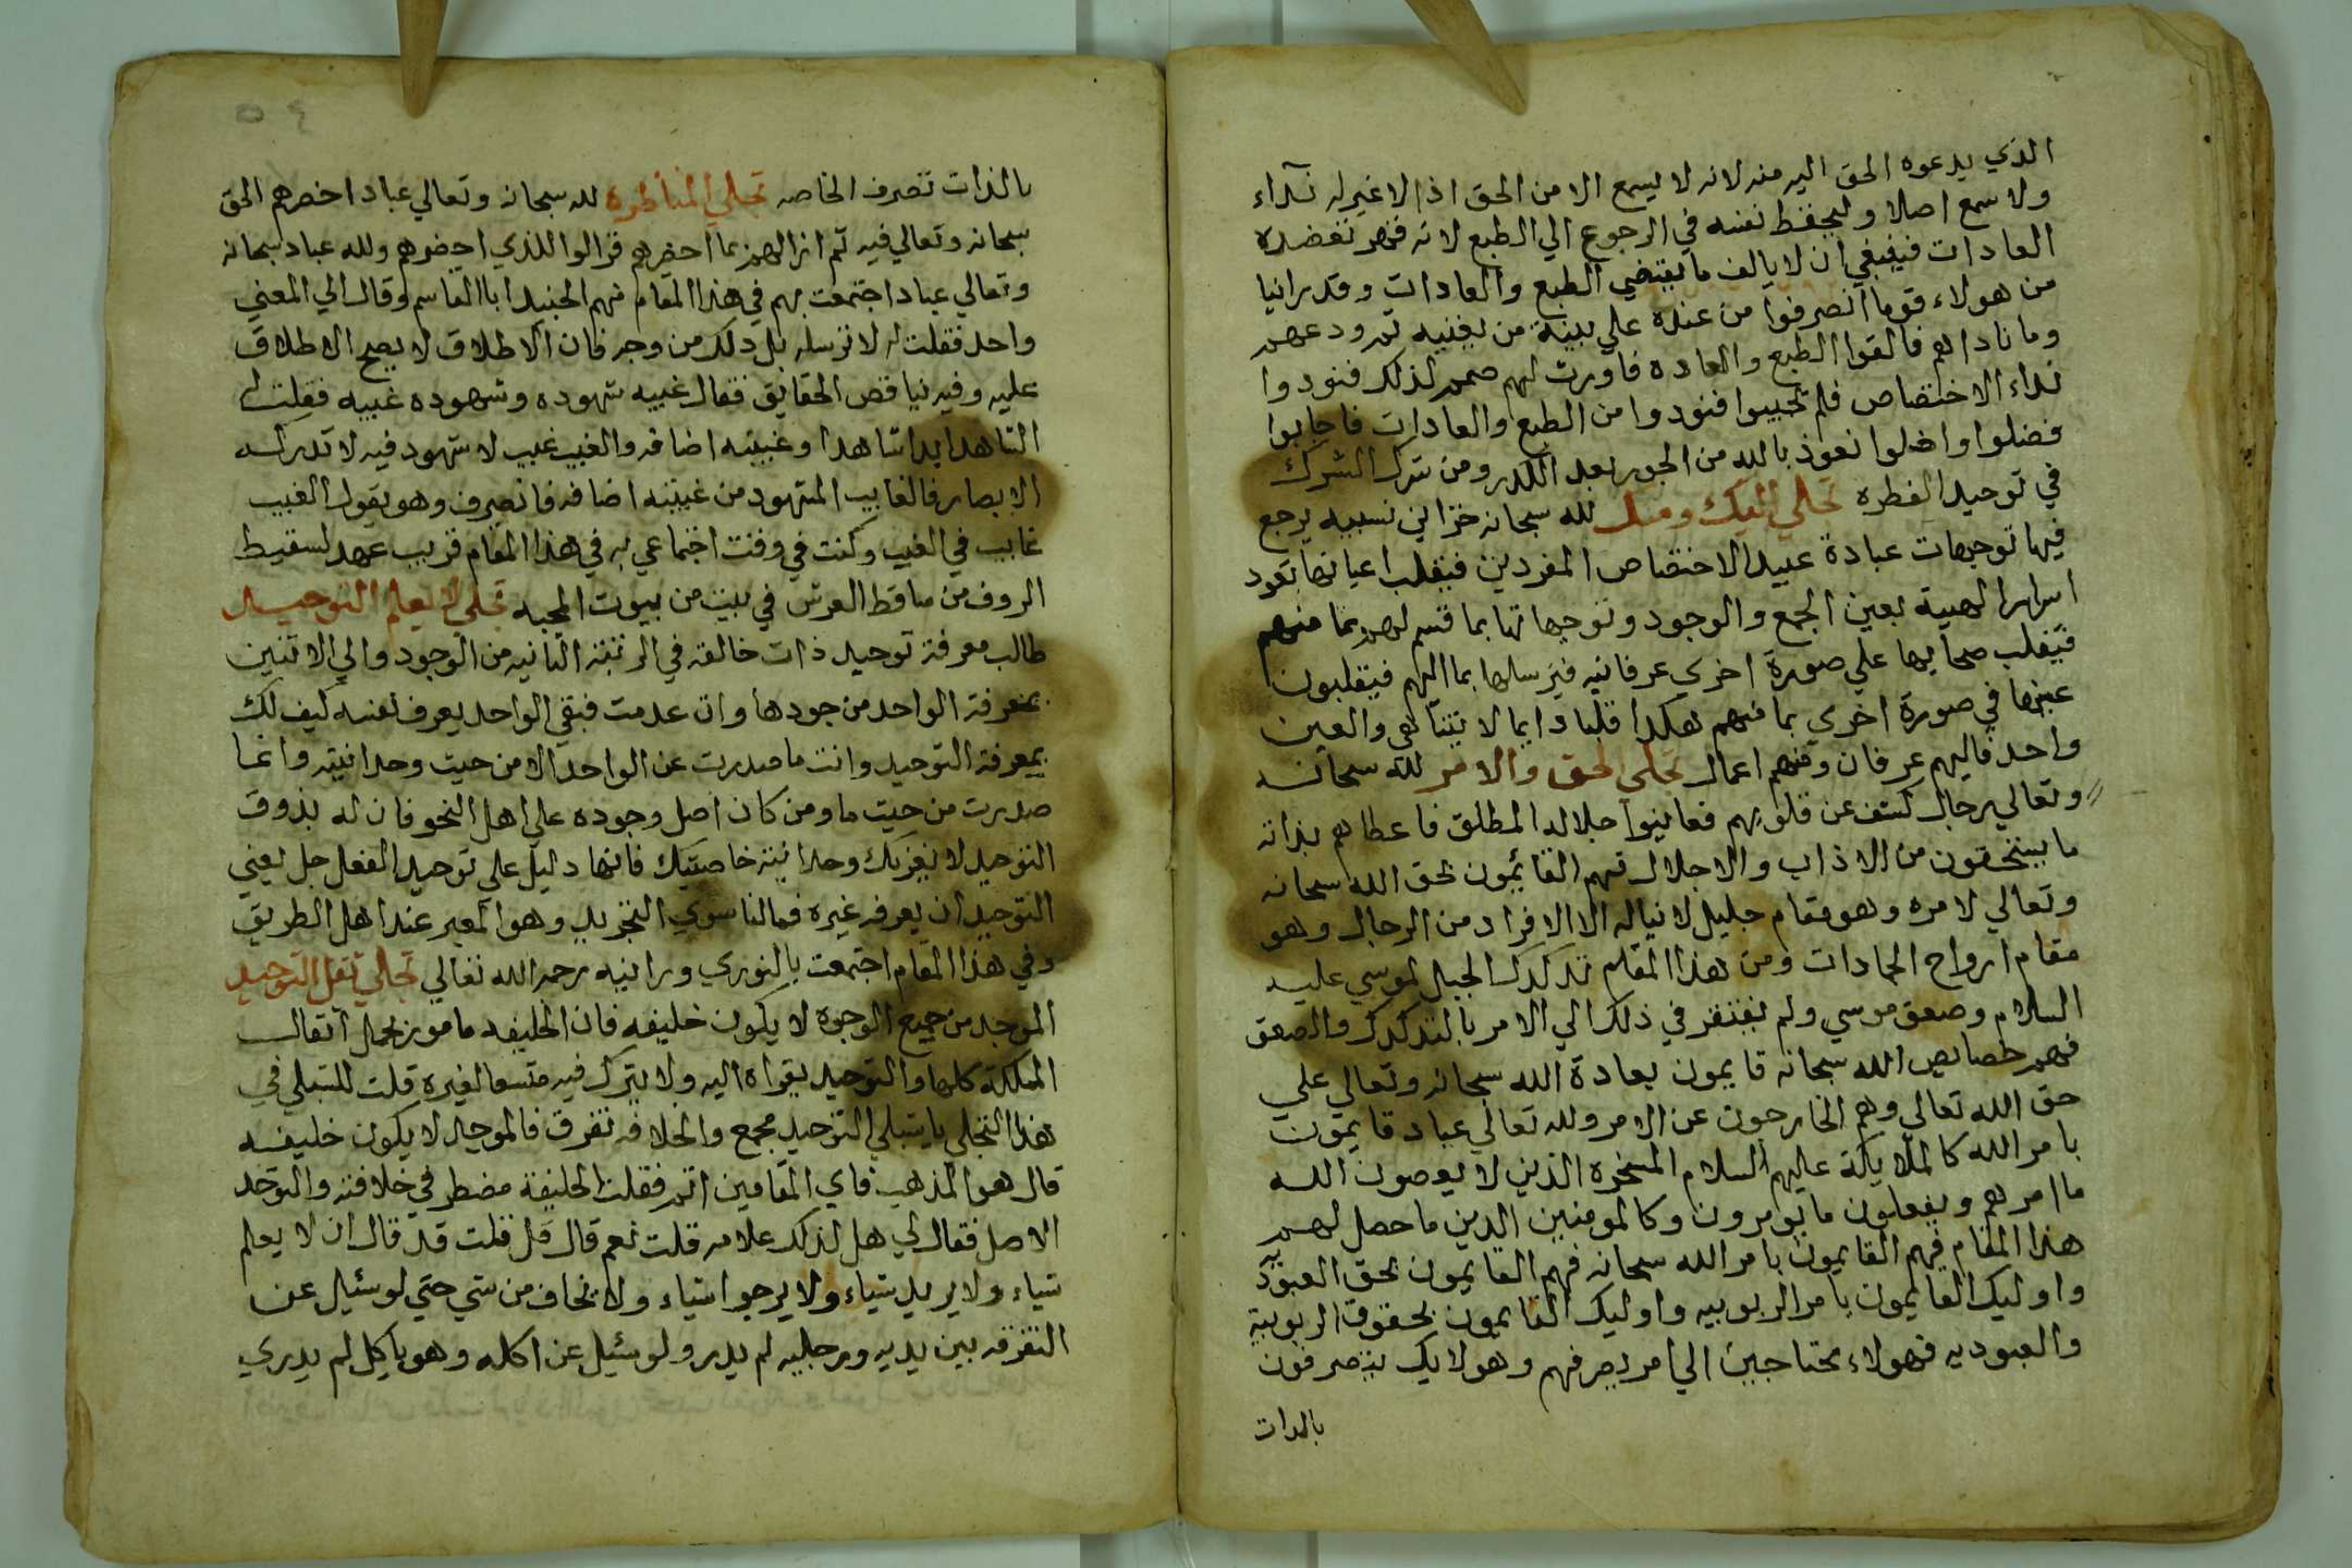 الذي يدعوه الحق اليه منه لانه لا يسمع الا من الحق اذ لا غير له نداء
ولا سمع اصلا وليحفظ نفسه في الرجوع الي الطبع لانه فهر
العادات فينبغي ان لا يالف ما يقتضي الطبع والعادات وقد راينا
من هولاء قوما انصرفوا من عنده علي بينة من ثم ودعهم
وما ناداهم فالفوا الطبع والعاده فاورث لهم صمم لذلك فنودوا
نداء الاختصاص فلم يجيبوا فنودوا من الطبع والعادات فاجابوا
فضلوا واضلوا نعوذ بالله من الجور بعد الكدر ومن شرك الشرك
في توحيد الفطره تجلي لله سبحانه خزاين نسبيه يرجع
فيها توجهات عبادة عبيد الاختصاص المفردين فينقلب اعيانها بقود
اسرار الهيه بعين الجمع والوجود وتوجهاتها بما قسم لهم بما منهم
فيقلب صحايبها علي صورة اخري عرفانيه فيرسلها بما اليهم فيقلبون
عينها في صورة اخري بما منهم هكذا قلبا دايما لا يتناهي والعين
واحد فاليهم عرفان ومنهم اعمال تجلي الحق والامر لله سبحانه
وتعالي رجال كشف عن قلوبهم فعاينوا جلاله المطلق فاعطاهم بذاته
ما يستحقون من الاداب والاجلال فهم القائمون بحق الله سبحانه
وتعالي لا مره وهو مقام جليل لا يناله الا الافراد من الرجال وهو
مقام ارواح الجمادات ومن هذا المقام تدكدك الجبل لموسي عليه
السلام وصعق موسي ولم يفتقر في ذلك الي الامر بالتدكدك والصعق
فهم خصايص الله سبحانه قايمون بعادة الله سبحانه وتعالي علي
حق الله تعالي وهم الخارجون عن الامر ولله تعالي عباد قايمون
بامر الله كالملايكة عليهم السلام المسخره الذين لا يعصون الله
ما امرهم ويفعلون ما يومرون وكالمومنين الذين ما حصل لهم
هذا المقام فهم القايمون بامر الله سبحانه فهم القايمون بحق العبوديه
واوليك القايمون بامر الربوبيه واوليك القايمون بحقوق الربوبية
والعبوديه فهولاء محتاجين الي امر يصرفهم وهولايك يتصرفون
بالذات
٥٤
بالذات تصرف الخاصه تجلي المناظره لله سبحانه وتعالي عباد احضرهم الحق
سبحانه وتعالي فيه ثم ازالهم بما احضرهم فزالوا للذي احضرهم ولله عباد سبحانه
وتعالي عبادا اجتمعت بهم في هذا المقام منهم الجنيد ابا القاسم وقال لي المعني
واحد فقلت له لا ترسله بل ذلك من وجه فان الاطلاق لا يصح الاطلاق
عليه وفيه يناقض الحقايق فقال غيبه شهوده وشهوده غيبه فقلت له
الشاهد ابدا شاهدا وغيبته اضافه والغيب غيب لا شهود فيه لا تدركه
الابصار فالغايب المشهود من غيبته اضافه فانصرف وهو يقول الغيب
غايب في الغيب وكنت في وقت اجتماعي به في هذا المقام قريب عهد لسقيط
الروف من ساقط العرش في بيت من بيوت المحبه تجلي لا يعلم التوحيد
طالب معرفة توحيد ذات خالقه في الرتبة الثانيه من الوجود والي الاثنين
بمعرفة الواحد من جودها وان عدمت فبقي الواحد يعرف نفسه كيف لك
بمعرفة التوحيد وانت ما صدرت عن الواحد الا من حيث وحدانيته وانما
صدرت من حيث ما ومن كان اصل وجوده علي اهل النحو فان له بذوق
التوحيد لا يغرنك وحدانية خاصيتك فانها دليل علي توحيد الفعل جل يعني
التوحيد ان يعرفه غيره فمالنا سوي التجريد وهو المعبر عند اهل الطريق
وفي هذا المقام اجتمعت بالنوري ورانيه رحمه الله تعالي تجلي ثقل التوحيد
الموحد من جميع الوجوه لا يكون خليفه فان الخليفه مامور بحمل اثقال
المملكة كلها والتوحيد يقراه اليه ولا يترك فيه متسعا لغيره قلت للشبلي في
هذا التجلي يا شبلي التوحيد مجمع والخلافه تفرق فالموحد لا يكون خليفه
قال هو المذهب فاي المقامين اتم فقلت الخليفة مضطر في خلافته والتوحد
الاصل فقال لي هل لذلك علامه قلت نعم قال قل قلت قد قال ان لا يعلم
شياء ولا يريد شياء ولا يرجو اشياء ولا يخاف من شي حتي لو سئيل عن
التفرقه بين يديه ورجليه لم يدر ولو سئيل عن اكله وهو ياكل لم يدري